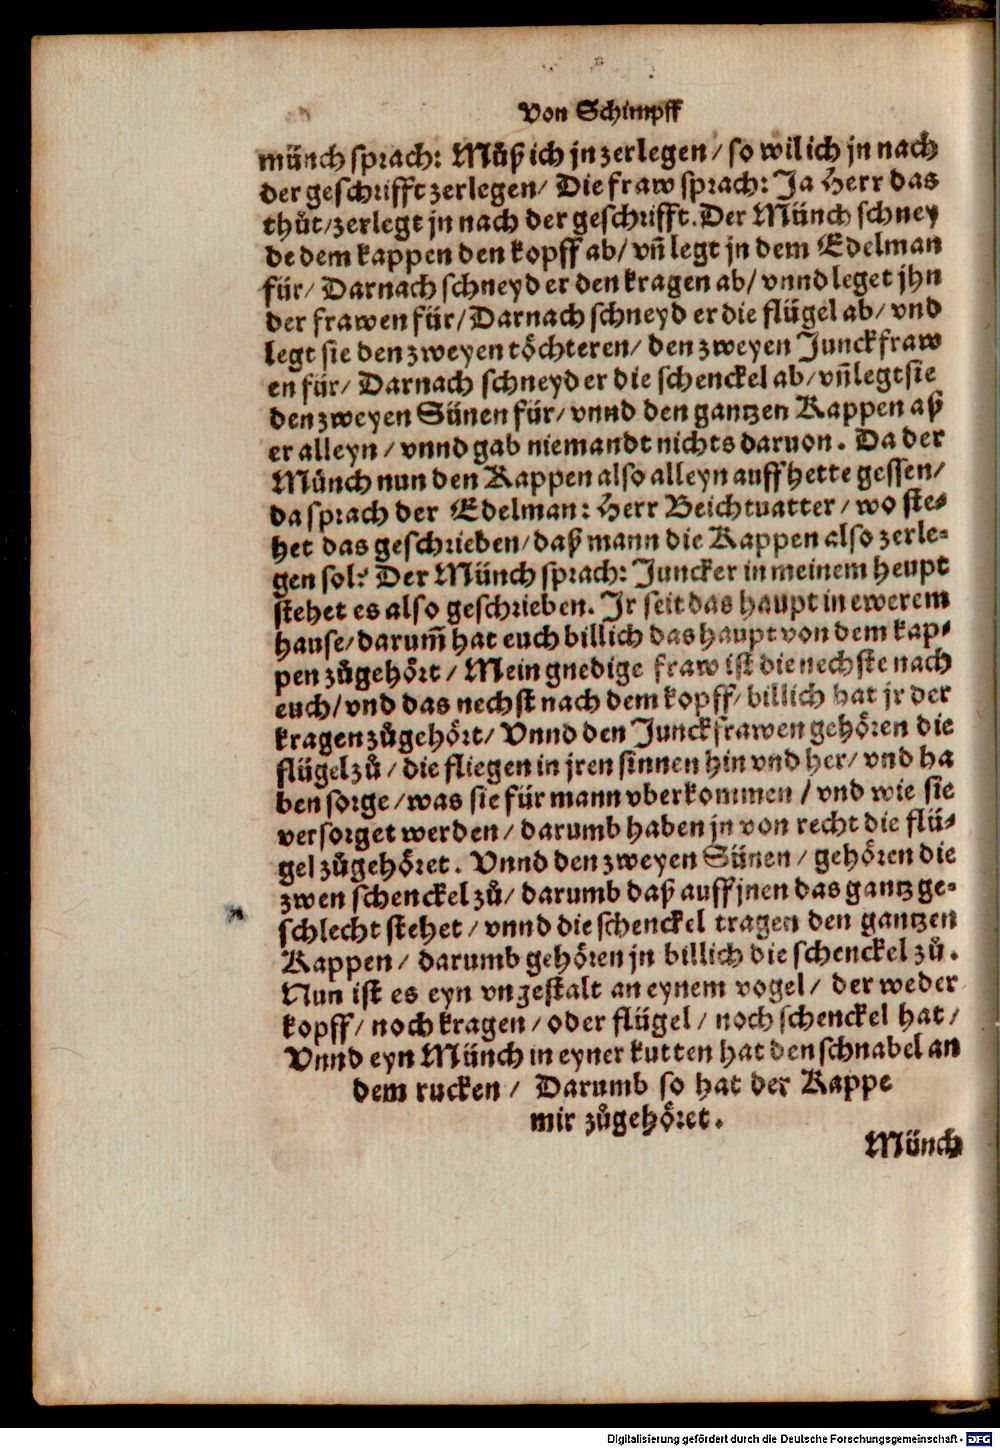 Von Schimpff
münch sprach: Můß ich jn zerlegen / so wil ich jn nach
der geschrifft zerlegen / Die fraw sprach: Ja Herr das
thůt / zerlegt jn nach der geschrifft. Der Münch schney
de dem kappen den kopff ab / vñ legt jn dem Edelman
für / Darnach schneyd er den kragen ab / vnnd leget jhn
der frawen für / Darnach schneyd er die flügel ab / vnd
legt sie den zweyen töchteren / den zweyen Junckfraw
en für / Darnach schneyd er die schenckel ab / vñ legt sie
den zweyen Sünen für / vnnd den gantzen Kappen aß
er alleyn / vnnd gab niemandt nichts daruon. Da der
Münch nun den Kappen also alleyn auff hette gessen /
da sprach der Edelman: Herr Beichtuatter / wo ste⸗
het das geschrieben / daß mann die Kappen also zerle⸗
gen sol? Der Münch sprach: Juncker in meinem heupt
stehet es also geschrieben. Jr seit das haupt in ewerem
hause / darum̃ hat euch billich das haupt von dem kap⸗
pen zůgehört / Mein gnedige fraw ist die nechste nach
euch / vnd das nechst nach dem kopff / billich hat jr der
kragen zůgehört / Vnnd den Junckfrawen gehören die
flügel zů / die fliegen in jren sinnen hin vnd her / vnd ha
ben sorge / was sie für mann vberkommen / vnd wie sie
versorget werden / darumb haben jn von recht die flü⸗
gel zůgehöret. Vnnd den zweyen Sünen / gehören die
zwen schenckel zů / darumb daß auff jnen das gantz ge⸗
schlecht stehet / vnnd die schenckel tragen den gantzen
Kappen / darumb gehören jn billich die schenckel zů.
Nun ist es eyn vngestalt an eynem vogel / der weder
kopff / noch kragen / oder flügel / noch schenckel hat /
Vnnd eyn Münch in eyner kutten hat den schnabel an
dem rucken / Darumb so hat der Kappe
mir zůgehöret.
Münch
Digitalisierung gefördert durch die Deutsche Forschungsgemeinschaft - DFG